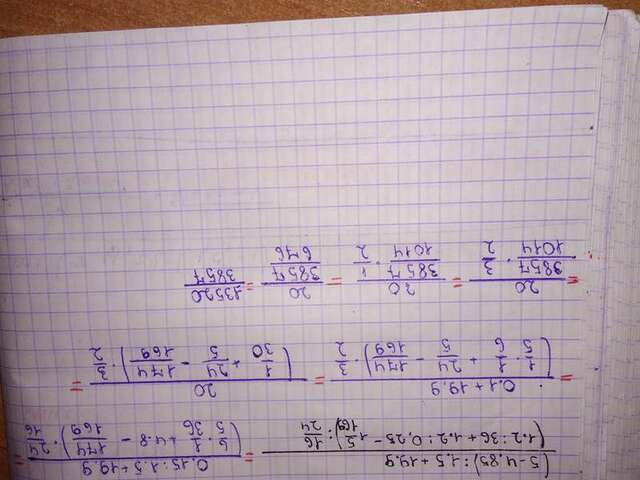 (5-4.85):1.5+19.9 / (1.2:36+1.2:0,25-1 5/169):16/24 = 0.15:1.5+19.9 / (6/5·1/36+4.8-174/169)·24/16 =
= 0.1+19.9 / (1/5·1/6+24/5-174/169)·3/2 = 20 / (1/30+24/5-174/169)·3/2 =
= 20 / 3857/1014·3/2 = 20 / 3857/1014·1/2 = 20 / 3857/676 = 13520/3857